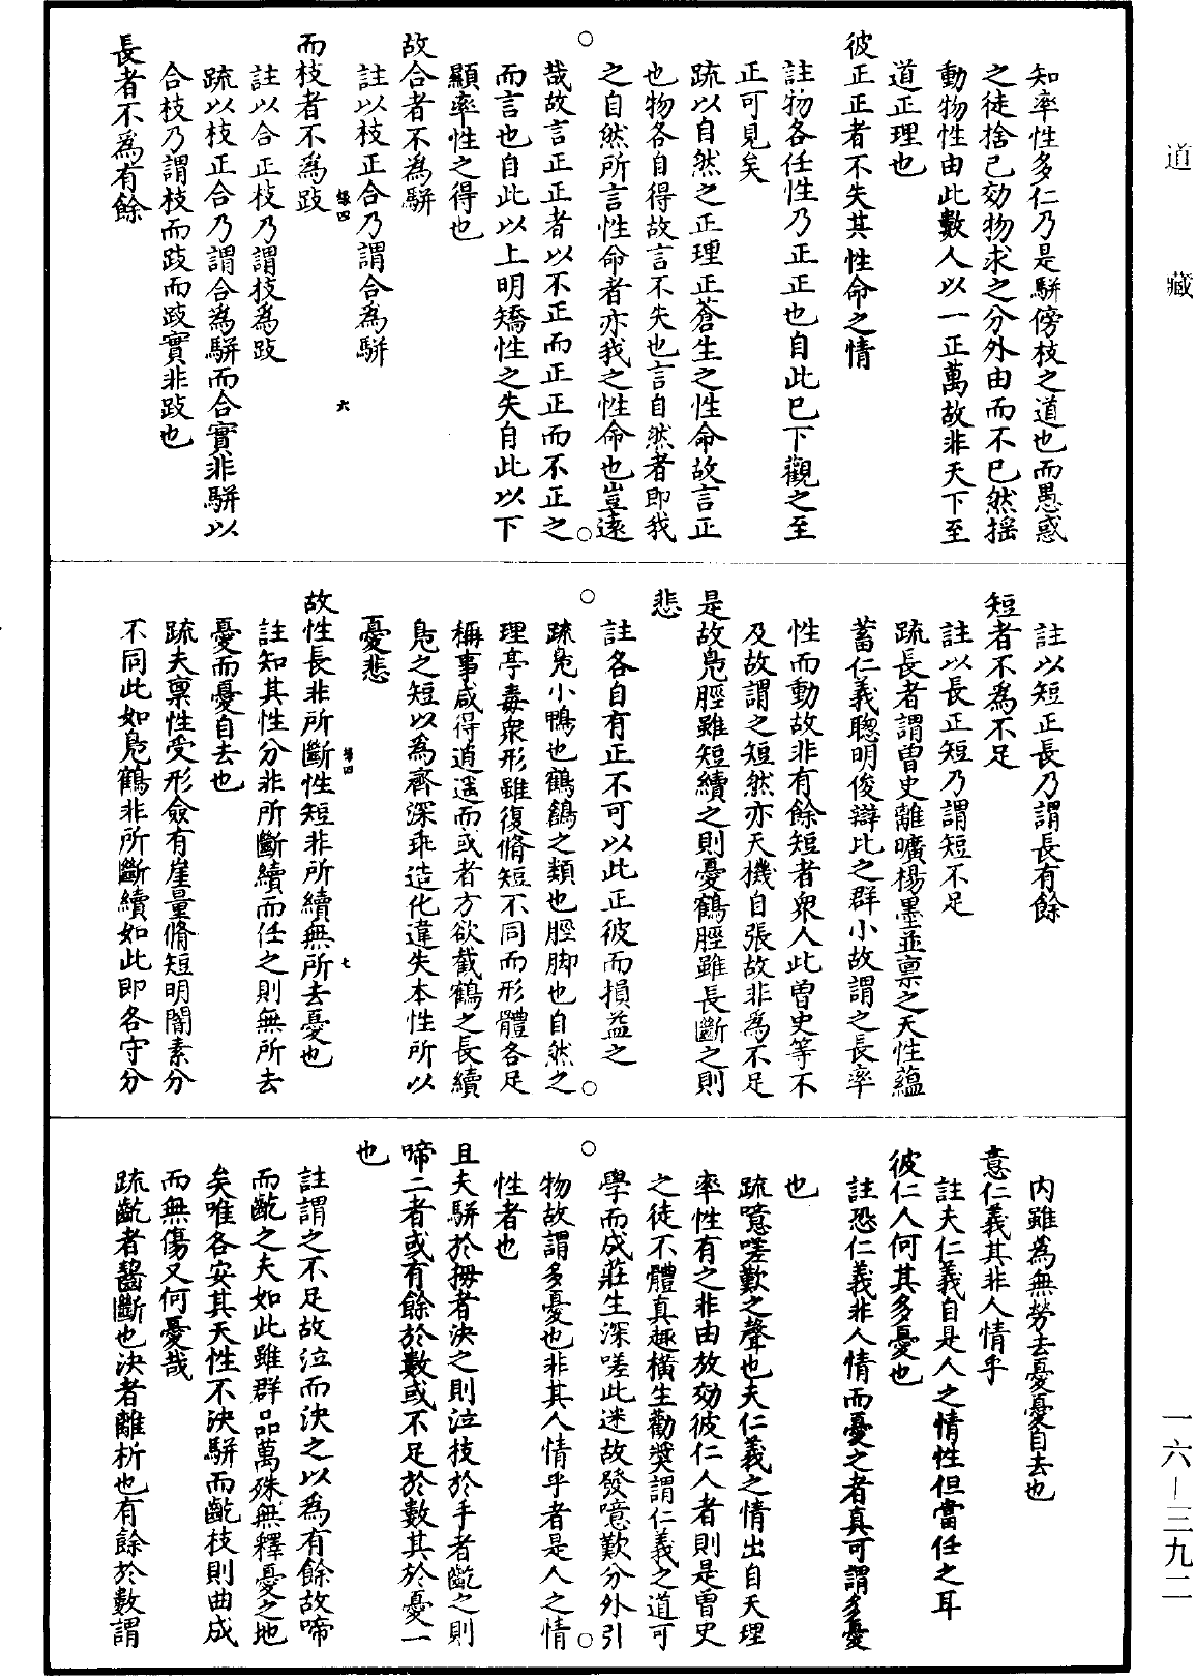 道藏
知率性多仁乃是駢傍枝之道也而愚惑
之徒捨己効物求之分外由而不已然揺
動物性由此數人以一正萬故非天下至
道正理也
彼正正者不失其性命之情
註物各任性乃正正也自此已下觀之至
正可見矣
疏以自然之正理正蒼生之性命故言正
也物各自得故言不失也言自然者即我
之自然所言性命者亦我之性命也豈遠
哉故言正正者以不正而正正而不正之
而言也自此以上明矯性之失自此以下
顯率性之得也
故合者不為駢
註以枝正合乃謂合為駢
六
而枝者不為跂
註以合正枝乃謂枝為跂
疏以枝正合乃謂合為駢而合實非駢以
合枝乃謂枝而跂而跂實非跂也
長者不為有餘
註以短正長乃謂長有餘
短者不為不足
註以長正短乃謂短不足
疏長者謂曾史離曠楊墨並禀之天性蘊
蓄仁義聰明俊辯比之群小故謂之長率
性而動故非有餘短者衆人比曾史等不
及故謂之短然亦天機自張故非為不足
是故鳬脛雖短續之則憂鶴脛雖長斷之則
悲
註各自有正不可以此正彼而損益之
疏鳬小鴨也鶴鶬之類也脛脚也自然之
理亭毒衆形雖復脩短不同而形體各足
稱事咸得逍遥而或者方欲截鶴之長續
鳬之短以為齊深乖造化違失本性所以
憂悲
七
故性長非所斷性短非所續無所去憂也
註知其性分非所斷續而任之則無所去
憂而憂自去也
疏夫禀性受形僉有崖量脩短明闇素分
不同此如鳬鶴非所斷續如此即各守分
内雖為無勞去憂憂自去也
意仁義其非人情乎
註夫仁義自是人之情性但當任之耳
彼仁人何其多憂也
註恐仁義非人情而憂之者真可謂多憂
也
疏噫嗟歎之聲也夫仁義之情出自天理
率性有之非由放効彼仁人者則是曾史
之徒不體真趣橫生勸奬謂仁義之道可
學而成莊生深嗟此迷故發噫歎分外引
物故謂多憂也非其人情乎者是人之情
性者也
且夫駢於拇者決之則泣枝於手者齕之則
啼二者或有餘於數或不足於數其於憂一
也
註謂之不足故泣而決之以為有餘故啼
而齕之夫如此雖群品萬殊無釋憂之地
矣唯各安其天性不決駢而齕枝則曲成
而無傷又何憂哉
疏齕者齧斷也決者離析也有餘於數謂
一六—三九二